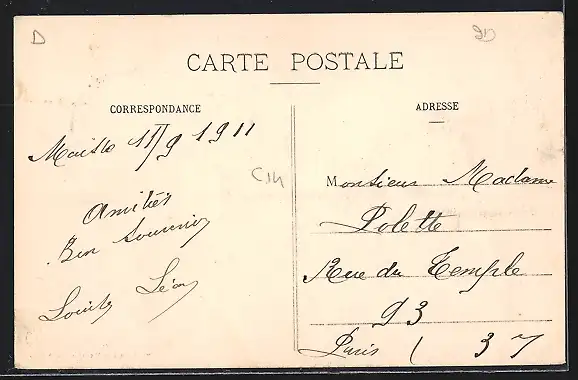 D
CARTE POSTALE
CORRESPONDANCE
ADRESSE
11/9 1911
C14
Amitiés
Bon Souvenir
Léon
Monsieur Madame
Polette
Rue du Temple
93
Paris ( 37